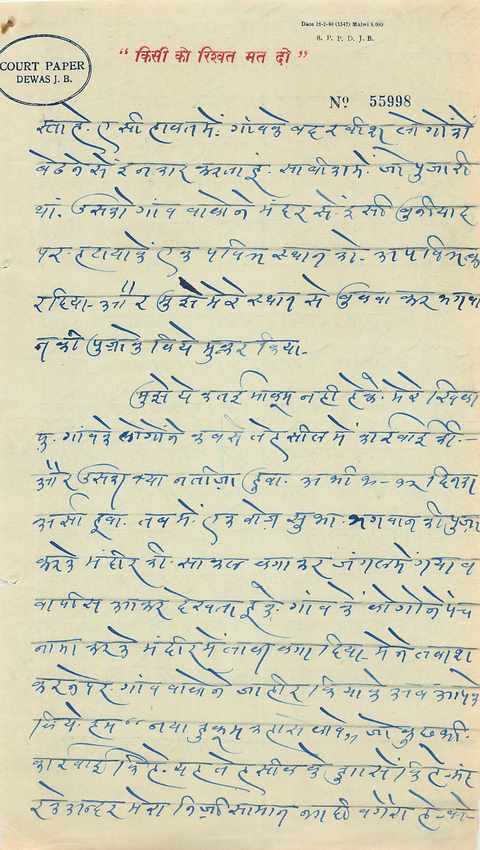 Dass 15-2-40 (1347) Malwi 5,000
S. P. P. D. J. B.
COURT PAPER
DEWAS J. B.
“ किसी को रिश्वत मत दो ”
Nº 55998
स्ता हे. ए सी हालत में. गांव के वह रवीश लोगों को
बेठने से इनकार करता हुं. साबीक में. जो पुजारी
था. उसको गांव वालोने मंदर से. इसी बुनीयाद
पर हटाया के एक पवित्र स्थान को. अपवित्र क
र दिया. और मुझे मेरे स्थान से बुलवा कर भगवा
न की पुजा के लिये मुकर किया.
मुझे ये कतई मालूम नही हेके. मेरे खिला
फ. गांवके लोगोंने कबसे तेहसील में कारवाई की.-
और उसका क्या नतीजा हुवा. अभी दिनका
अर्सा हूवा. तब में. एक रोज सुभा. भगवान की पुजा
करके मंदीर की. साकल लगा कर जंगलमें गया व
वापीस आकर देखता हूके. गांव के लोगोने पंच
नामा करके मंदीरमें ताला लगा दिया. मेने तलाश
करनेपर. गांव वालोने जाहीर किया के अब आपके
लिये हम “ नया हुकूम लावे,, जो कुछ की.
कारवाई कि हे. यह तेहसील के द्वारा से कि हे. मं
दरके अन्दर मेरा निजी सामान वगेरा हे.